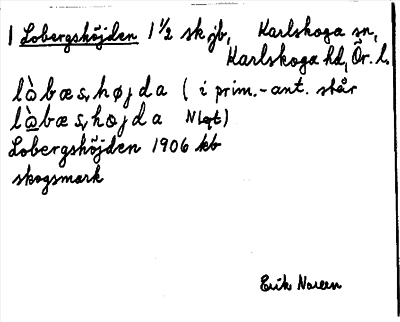 1 Lobergshöjden 1 1/2 sk jb, Karlskoga sn,
Karlskoga hd, Ör. l.
lòbæs,højda (i prim.-ant. står
lòbæs,højda Nlqt)
Lobergshöjden 1906 kb
skogsmark
Erik Noreen